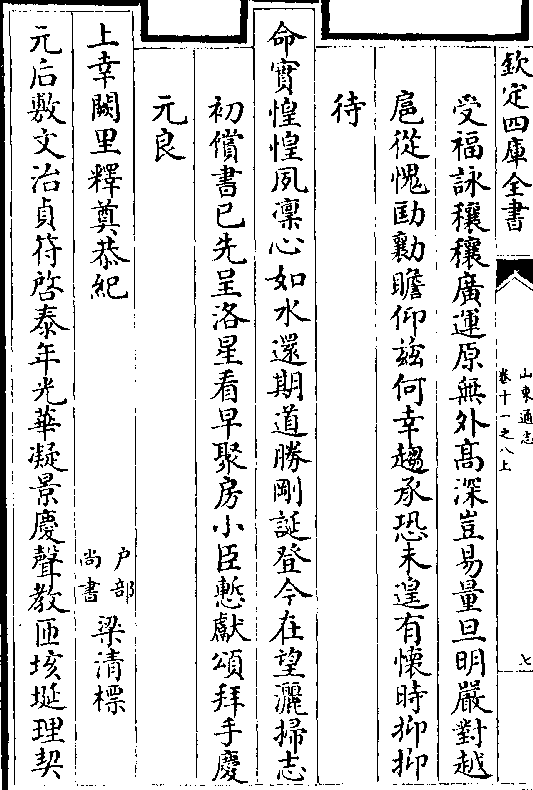 欽定四庫全書
山東通志
卷十一之八上
七
受福詠穰穰廣運原無外髙深豈易量旦明嚴對越
扈從愧劻勷瞻仰兹何幸趨承恐未遑有懷時抑抑
待
命實惶惶夙凛心如水還期道勝剛誕登今在望灑掃志
初償書已先呈洛星看早聚房小臣慙獻頌拜手慶
元良
上幸闕里釋奠恭紀
户部尚書
梁清標
元后敷文治貞符啓泰年光華凝景慶聲教匝垓埏理契